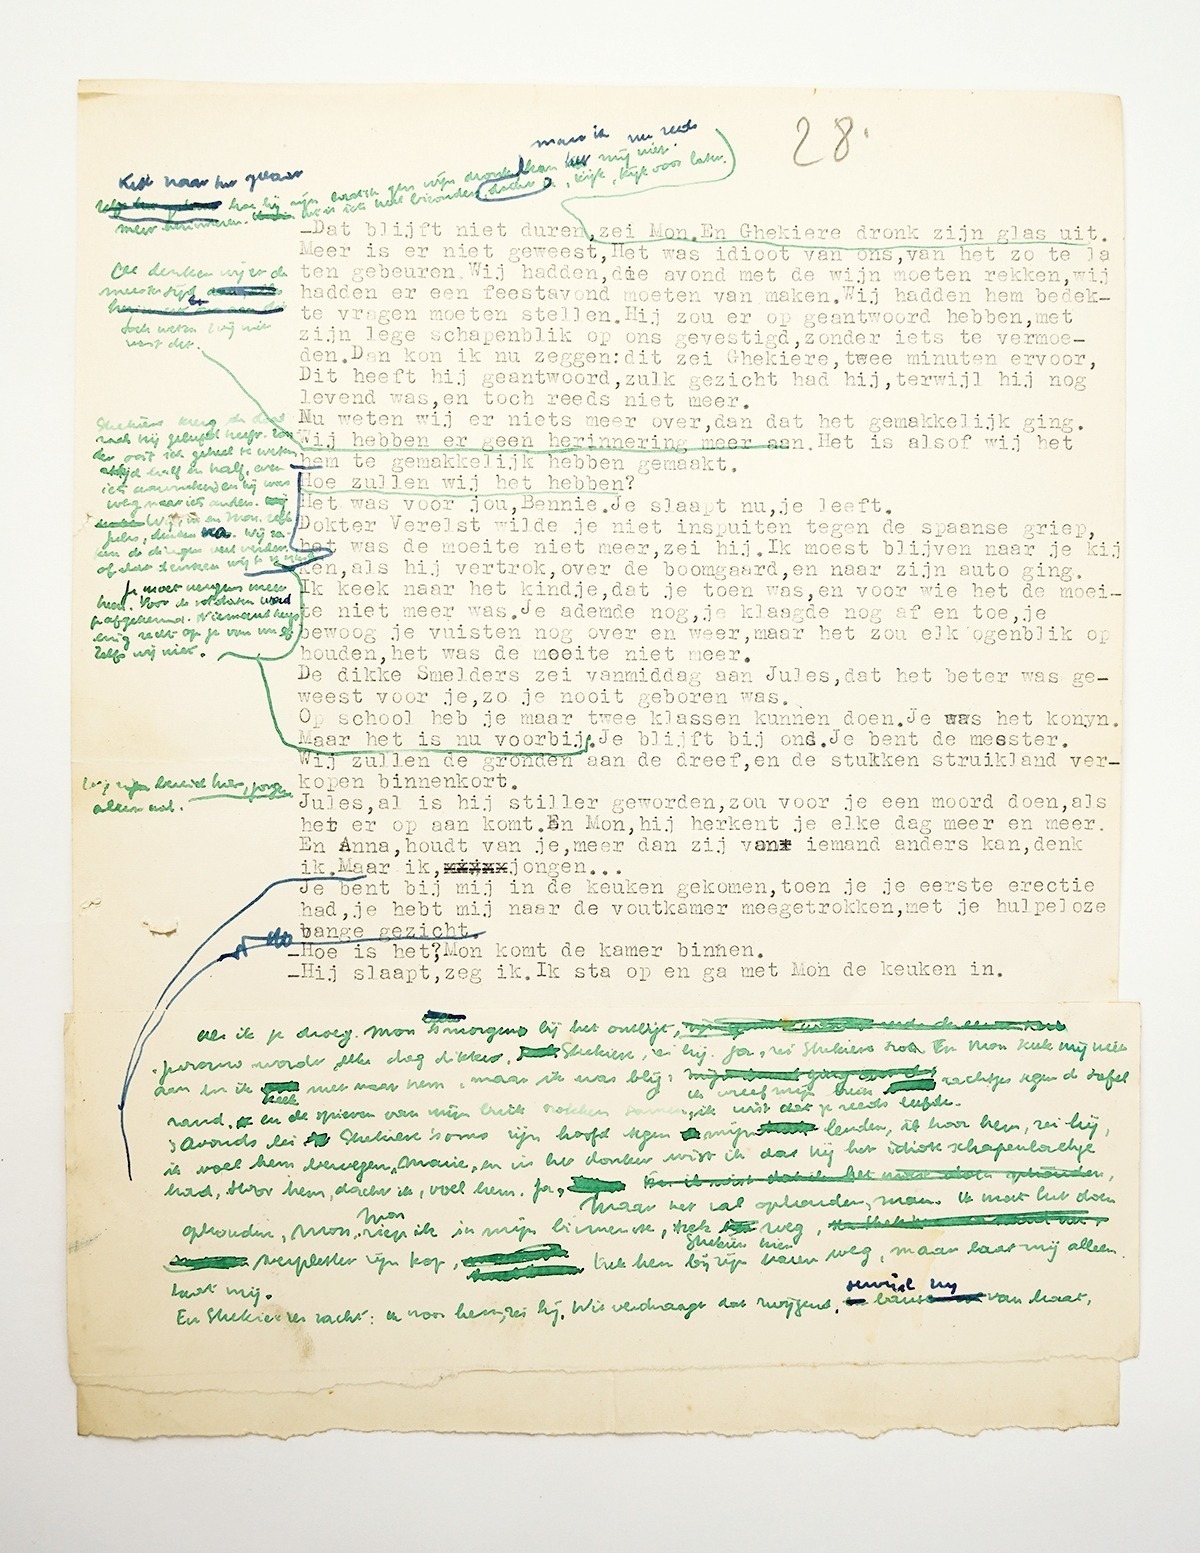 28.
maar ik nu reeds
Kijk naar het gelaat
hoe hij zijn laatste glas wijn dronk, kan mij niet
meer herinneren. het is iets heel bizonders, dacht ik, kijk, kijk voor later.
–Dat blijft niet duren,zei Mon.En Ghekiere dronk zijn glas uit.
Meer is er niet geweest,Het was idioot van ons,van het zo te la
ten gebeuren.Wij hadden,die avond met de wijn moeten rekken,wij
hadden er een feestavond moeten van maken.Wij hadden hem bedek–
te vragen moeten stellen.Hij zou er op geantwoord hebben,met
zijn lege schapenblik op ons gevestigd,zonder iets te vermoe–
den.Dan kon ik nu zeggen:dit zei Ghekiere,twee minuten ervoor,
Dit heeft hij geantwoord,zulk gezicht had hij,terwijl hij nog
levend was,en toch reeds niet meer.
Nu weten wij er niets meer over,dan dat het gemakkelijk ging.
Wij hebben er geen herinnering meer aan.Het is alsof wij het
hem te gemakkelijk hebben gemaakt.
Hoe zullen wij het hebben?
Het was voor jou,Bennie.Je slaapt nu,je leeft.
Dokter Verelst wilde je niet inspuiten tegen de spaanse griep,
het was de moeite niet meer,zei hij.Ik moest blijven naar je kij
ken,als hij vertrok,over de boomgaard,en naar zijn auto ging.
Ik keek naar het kindje,dat je toen was,en voor wie het de moei–
te niet meer was.Je ademde nog,je klaagde nog af en toe,je
bewoog je vuisten nog over en weer,maar het zou elk ogenblik op
houden,het was de moeite niet meer.
De dikke Smelders zei vanmiddag aan Jules,dat het beter was ge–
weest voor je,zo je nooit geboren was.
Op school heb je maar twee klassen kunnen doen.Je was het konyn.
Maar het is nu voorbij.Je blijft bij ons.Je bent de meester.
Wij zullen de gronden aan de dreef,en de stukken struikland ver–
kopen binnenkort.
Jules,al is hij stiller geworden,zou voor je een moord doen,als
het er op aan komt.En Mon,hij herkent je elke dag meer en meer.
En Anna,houdt van je,meer dan zij van iemand anders kan,denk
ik.Maar ik,jongen...
Je bent bij mij in de keuken gekomen,toen je je eerste erectie
had,je hebt mij naar de voutkamer meegetrokken,met je hulpeloze
bange gezicht.
–Hoe is het?Mon komt de kamer binnen.
–Hij slaapt,zeg ik.Ik sta op en ga met Mon de keuken in.
denken wij er de
meeste tijd
toch weten wij niet
vast dat.
Ghekiere kreeg de dood
zoals hij geleefd heeft. Zon
der ooit iets geheel te weten
altijd half en half, even
iets aanraken en hij was
weg naar iets anders.
Wij, ik en Mon, zelfs
Jules, denken na. Wij za
ken de dingen veel verder.
of dat denken wij
Je moet nergens meer
heen. Voor de soldaten werd
je afgekeurd. Niemand kreeg
enig recht op je van ons
Zelfs wij niet.
Wij zijn bereid hier, jongen
alleen wat.
Als ik je droeg. Mon 's morgens bij het ontbijt,
Jeranne wordt elke dag dikker, Ghekiere, zei hij. Ja, zei Ghekiere trots. En Mon keek mij niet
aan en ik keek niet naar hem, maar ik was blij: ik wreef mijn buik zachtjes tegen de tafel
rand, en de spieren van mijn buik trokken samen, ik wist dat je reeds leefde.
's Avonds lei Ghekiere soms zijn hoofd tegen mijn lenden, ik hoor hem, zei hij,
ik voel hem bewegen, Marie, en in het donker wist ik dat hij het idiote schapenlachje
had, Hoor hem, dacht ik, voel hem. Ja,
Maar het zal ophouden, man. Ik moet het doen
ophouden, Mon, Mon riep ik in mijn binnenste, trek weg,
verpletter zijn kop, Trek Ghekiere hier bij zijn haren weg, maar laat mij alleen.
Laat mij.
En Ghekiere zei zacht: ik hoor hem, zei hij. Wie verdraagt dat zwijgend, terwijl hij van haat,